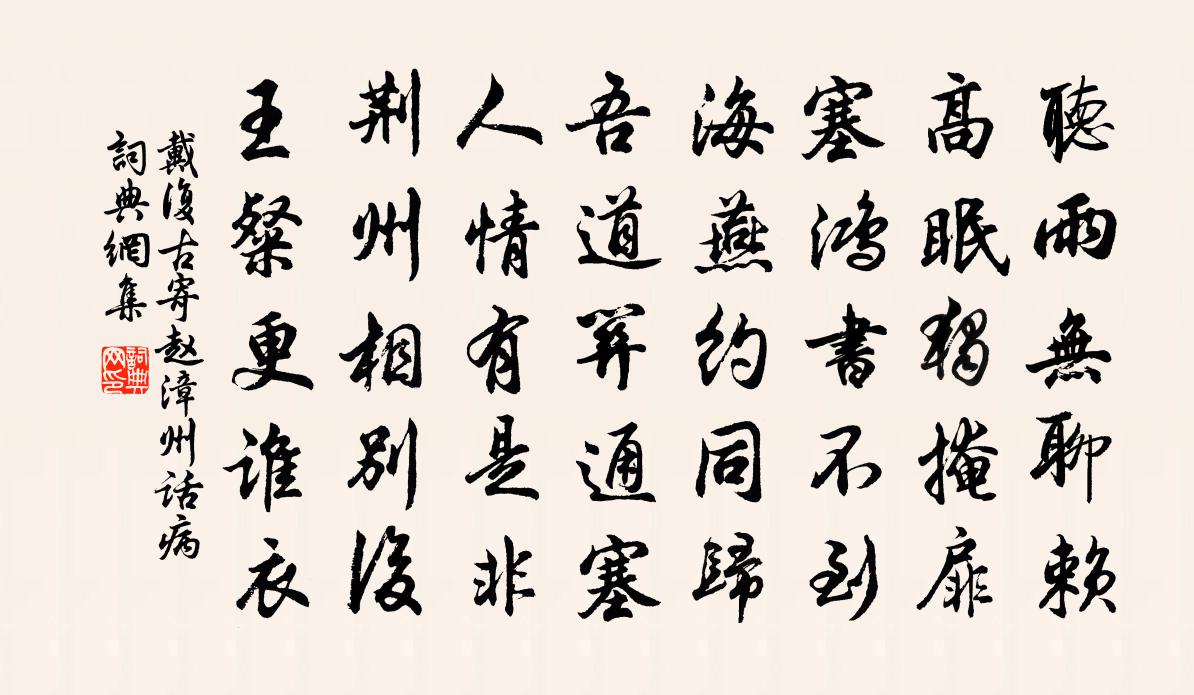 聽雨無聊賴
高眠獨掩扉
塞鴻書不到
海燕約同歸
吾道算通塞
人情有是非
荆州相別後
王粲更誰衣
戴復古寄赵漳州話病
詞典網集
詞典网印